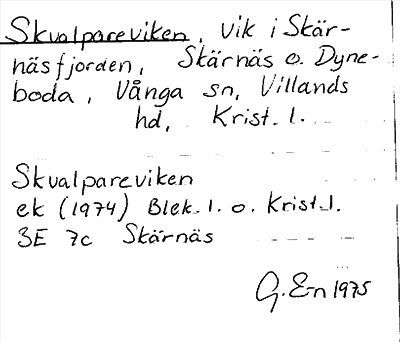 Skvalpareviken, vik i Skär-
näsfjorden, Skärnäs o. Dyne-
boda, Vånga sn, Villands
hd, Krist. l.
Skvalpareviken
ek (1974) Blek. l. o. Krist. l.
3E 7c Skärnäs
G. E-n 1975